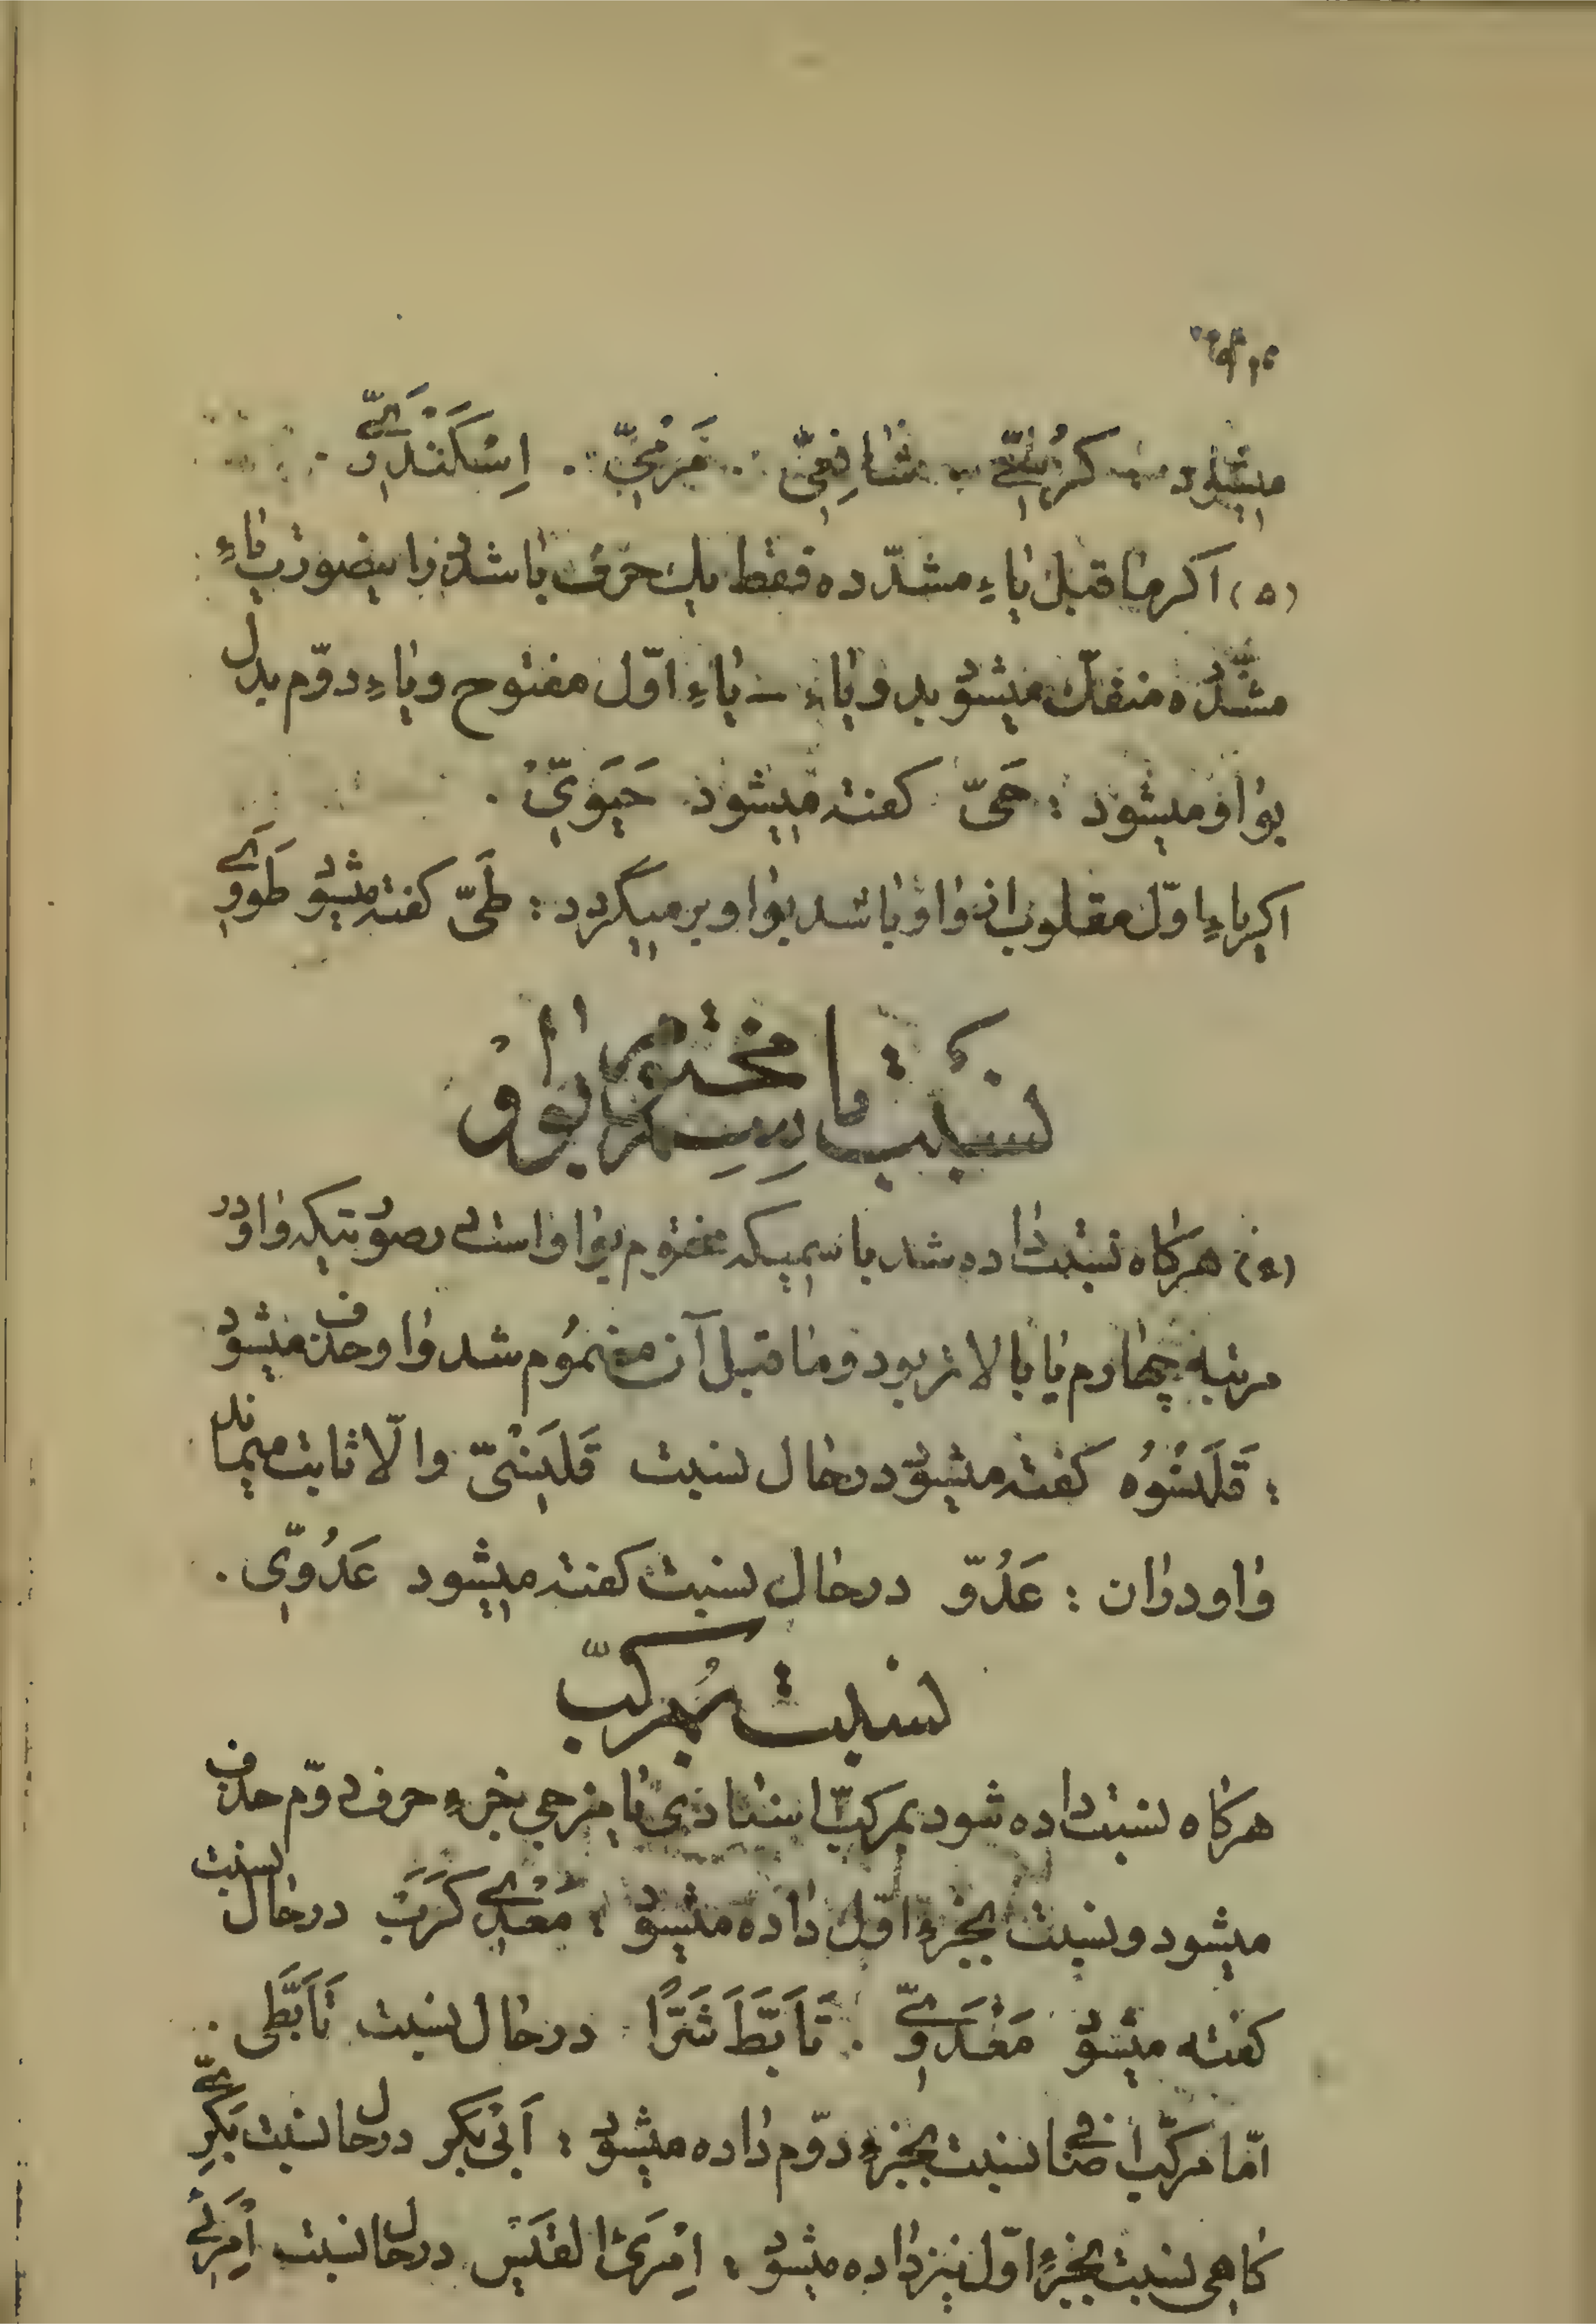 میشود : کُرْسِیّ . شافِعِیّ . مَرْمِیّ . اِسْکَنْدَرِیّ .
(۵) اگر ماقبل یاءِ مشدّده فقط یك حرف باشد دراینصورت یاءِ
مشدّده منفكّ میشود بدویاء - یاءِ اوّل مفتوح ویاءِ دوّم بدل
بواو میشود : حَیّ گفته میشود حَیَوِیّ .
اگر یاءِ اوّل مقلوب از واو باشد بواو برمیگردد : طَیّ گفته میشود طَوَوِی
نسبت باسم مختوم بواو
هرگاه نسبت داده شد باسمیکه مختوم بواو است درصورتیکه واو در
مرتبه چهارم یا بالاتر بود وماقبل آن مضمُوم شد واو حذف میشود
: قَلَنْسُوُه گفته میشود درحال نسبت قَلَنْسِیّ والّا ثابت میماند
واو درآن : عَدُوّ درحال نسبت گفته میشود عَدُوِّی .
نسبت بمُرکّب
هرگاه نسبت داده شود بمرکبّ اسنادی یا مزجی جزءِ حرف دوّم حذف
میشود ونسبت بجزءِ اوّل داده میشود : مَعْدِی کَرَبَ درحال نسبت
گفته میشود مَعْدَوِیّ . تَاَبَّطَ شَرًّا درحال نسبت تَاَبَّطِی .
امّا مرکّب اضافی نسبت بجزءِ دوّم داده میشود : اَبی بَکر درحال نسبت بَکْرِیّ
گاهی نسبت بجزءِ اوّل نیز داده میشود : اِمْرَئ القَیس درحال نسبت اِمْرَئِی